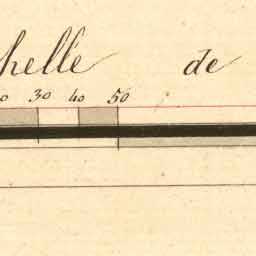 helle de
0 30 40 50